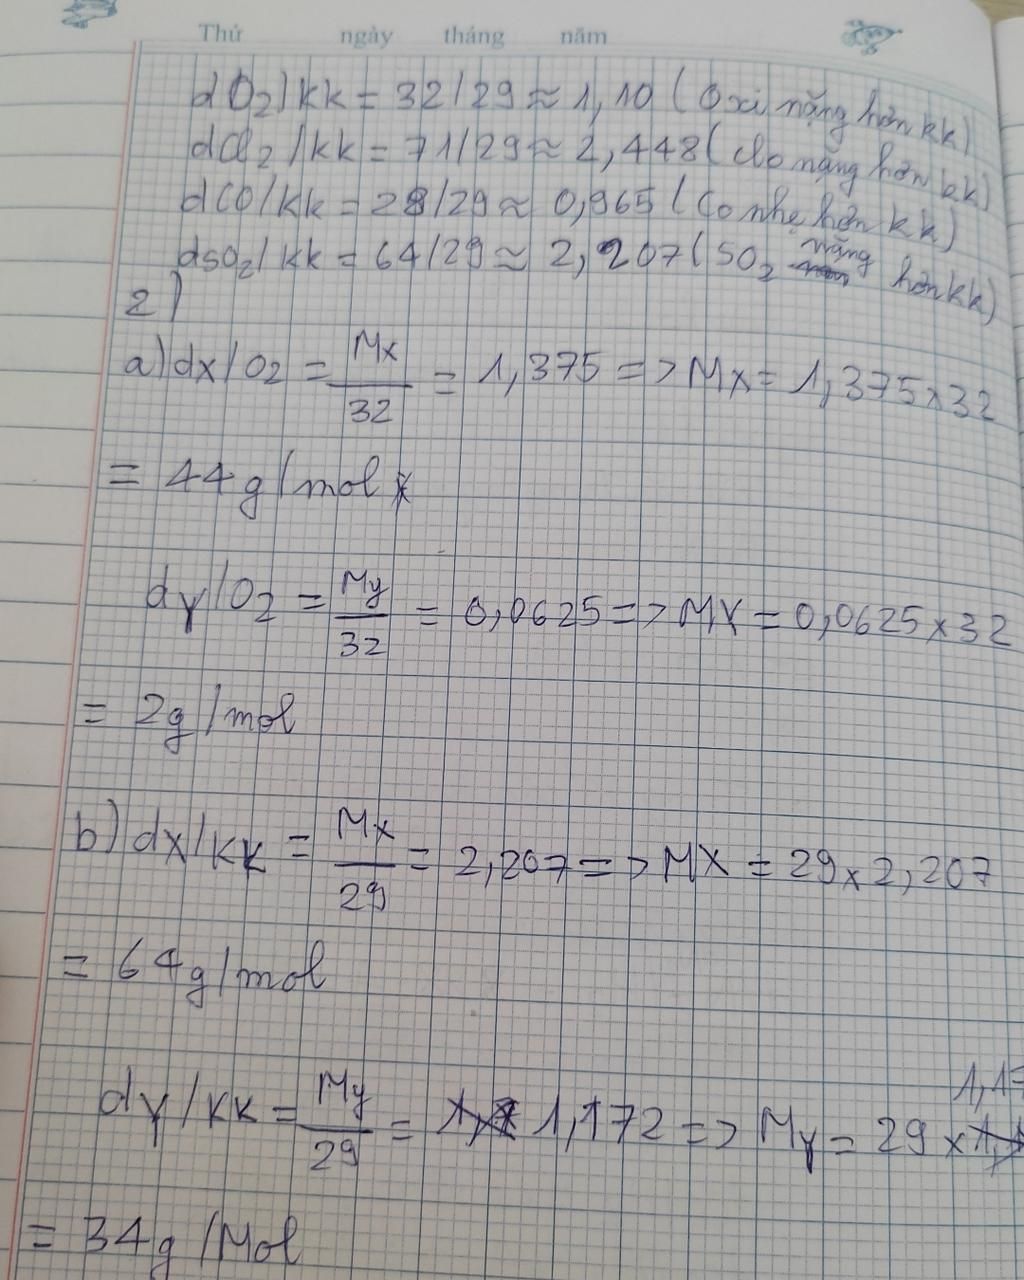 Thứ ngày tháng năm
dO₂/kk = 32/29 ≈ 1,10 (Oxi nặng hơn kk)
dCl₂/kk = 71/29 ≈ 2,448 (clo nặng hơn kk)
dCO/kk = 28/29 ≈ 0,965 (Co nhẹ hơn kk)
dSO₂/kk = 64/29 ≈ 2,207 (SO₂ nặng hơn kk)
2)
a) dx/O₂ = Mx/32 = 1,375 => Mx = 1,375 x 32
= 44g/mol
dy/O₂ = My/32 = 0,0625 => MY = 0,0625 x 32
= 2g/mol
b) dx/KK = Mx/29 = 2,207 => MX = 29 x 2,207
= 64g/mol
dy/KK = My/29 = 1,172 => My = 29 x
= 34g/Mol